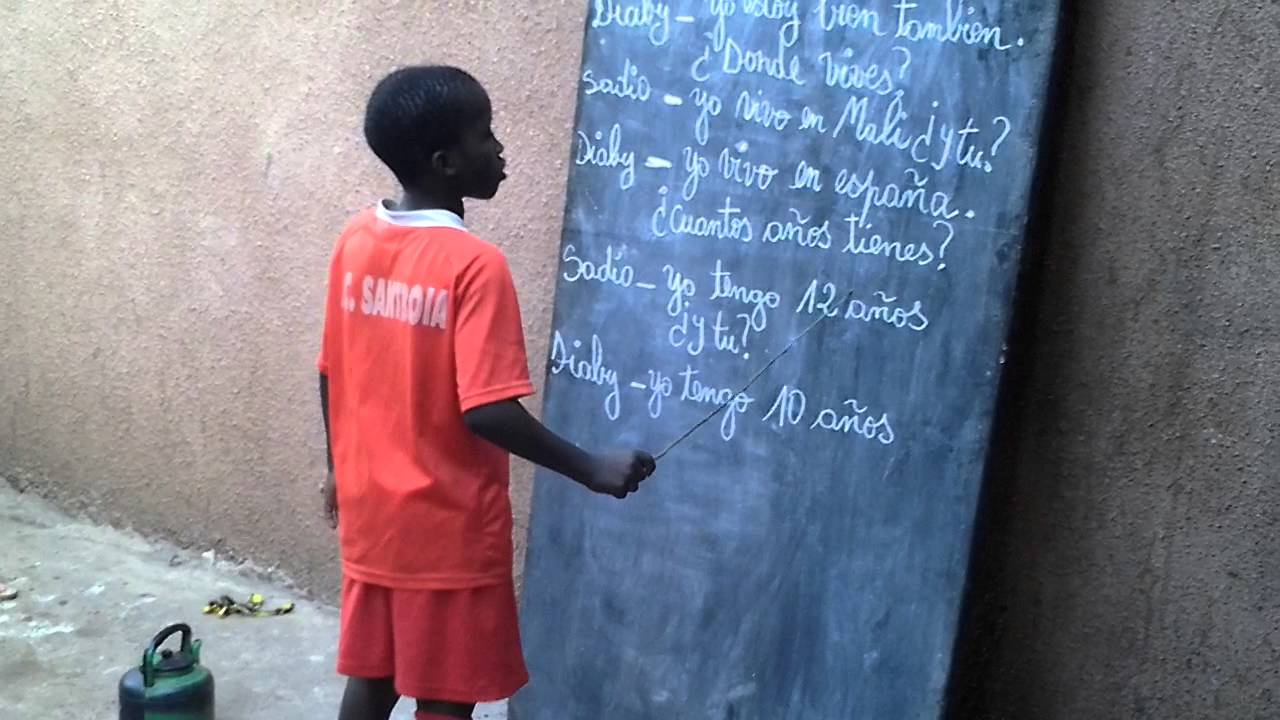 Diaby - yo estoy bien tambien.
¿Donde vives?
Sadio - yo vivo en Mali ¿y tu?
Diaby - yo vivo en españa.
¿cuantos años tienes?
Sadio - yo tengo 12 años
¿y tu?
Diaby - yo tengo 10 años
C. SANTBOIA